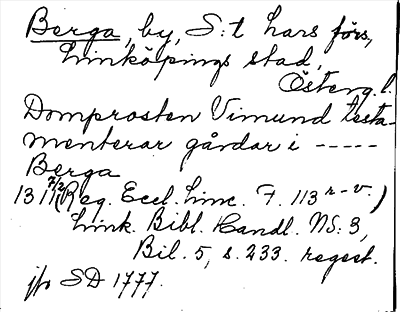 Berga, by, S:t Lars förs,
Linköpings stad,
Österg.l.
Domprosten Vimund testa-
menterar gårdar i -----
Berga
1311 7/2 (Reg. Eccl. Linc. F. 113 r-v.)
Link. Bibl. Handl. NS: 3,
Bil. 5, s. 233. regest.
jfr SD 1777.